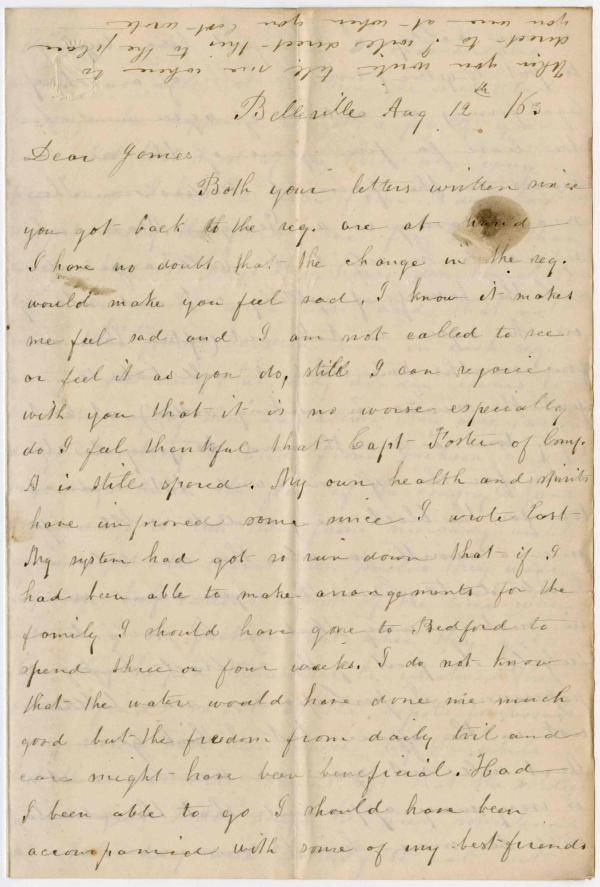 When you write tell me where to
direct to I will direct this to the place
you were at when you last wrote
Belleville Aug 12th /63
Dear James
Both your letters written since
you got back to the reg. are at hand
I have no doubt that the change in the reg.
would make you feel sad. I know it makes
me feel sad and I am not called to see
or feel it as you do, still I can rejoice
with you that it is no worse especially
do I feel thankful that Capt Foster of Comp.
A is still spared. My own health and spirits
have improved some since I wrote last
My system had got so run down that if I
had been able to make arrangements for the
family I should have gone to Bedford to
spend three or four weeks. I do not know
that the water would have done me much
good but the freedom from daily toil and
care might have been beneficial. Had
I been able to go I should have been
accompanied with some of my best friends